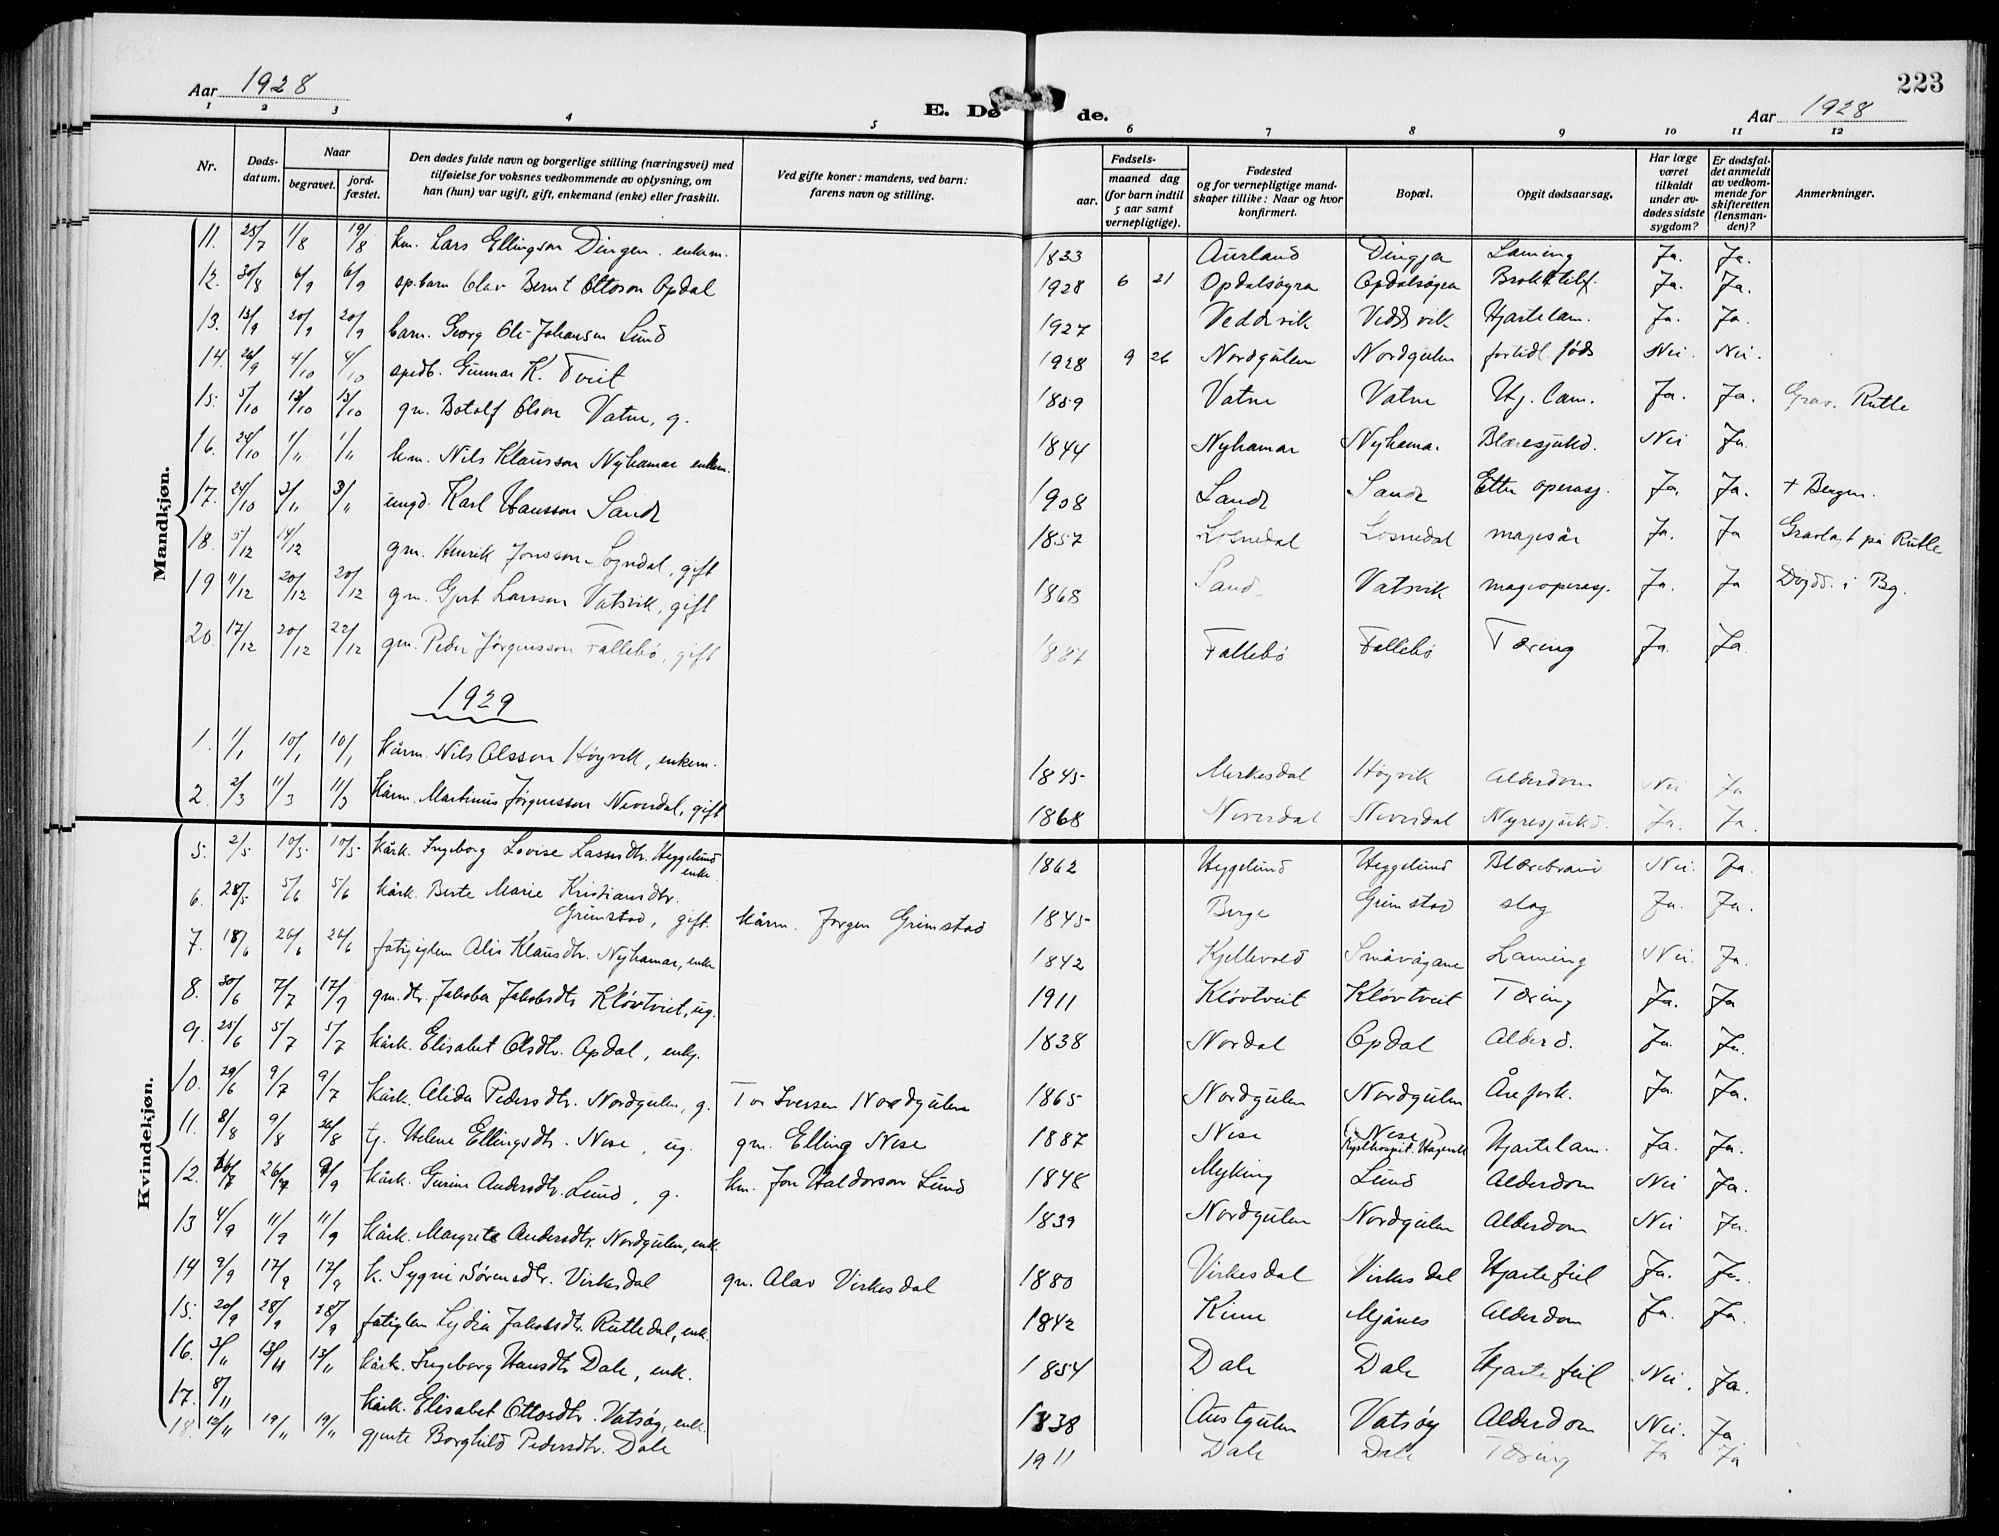 223
Aar 1928
E. Døde.
Aar 1928
1 2 3 4 5 6 7 8 9 10 11 12
Nr. Dødsdatum. Naar begravet. jordfæstet. Den dødes fulde navn og borgerlige stilling (næringsvei) med tilføielse for voksnes vedkommende av oplysning, om han (hun) var ugift, gift, enkemand (enke) eller fraskilt. Ved gifte koner: mandens, ved barn: farens navn og stilling. Fødsels- aar. maaned dag (for barn indtil 5 aar samt vernepligtige). Fødested og for vernepligtige mandskaper tillike: Naar og hvor konfirmert. Bopæl. Opgit dødsaarsag. Har læge været tilkaldt under avdødes sidste sygdom? Er dødsfaldet anmeldt av vedkommende for skifteretten (lensmanden)? Anmerkninger.
Mandkjøn.
11. 25/7 1/8 19/8 km. Lars Ellingson Dingen. enkem. 1833 Aurland Dingja Laming Ja. Ja.
12. 30/8 6/9 6/9 sp.barn Olav Bernt Ottoson Opdal 1928 6 21 Opdalsøyra Opdalsøyra Ja. Ja.
13. 13/9 20/9 20/9 barn. Georg Ole Johansen Lund 1927 Veddvik Veddvik Hjartelam. Ja. Ja.
14. 26/9 4/10 4/10 spedb. Gunnar K. Tveit 1928 9 26 Nordgulen Nordgulen fortidl. fødd Nei. Nei.
15. 5/10 13/10 13/10 gm. Botolf Olson Vatne, g. 1859 Vatne Vatne Hj. lam. Ja. Ja. Grav. Rutle
16. 24/10 1/11 1/11 km. Nils Klausson Nyhamar enkem. 1844 Nyhamar Nyhamar Blæresjukd. Nei Ja.
17. 24/10 3/11 3/11 ungd. Karl Hansson Sande 1908 Sande Sande Etter operasj. Ja. Ja. + Bergen.
18. 5/12 14/12 gm. Henrik Jonsson Losnedal, gift 1857 Losnedal Losnedal magesår Ja. Ja Gravlagt på Rutle
19 11/12 20/12 20/12 gm. Gjert Larsson Vatsvik, gift 1868 Sand Vatsvik mageoperasj. Ja. Ja Døydd i Bg.
20. 17/12 20/12 22/12 gm. Peder Jørgensson Fallebø, gift 1887 Fallebø Fallebø Tæring Ja. Ja.
1929
1. 1/1 10/1 10/1 kårm. Nils Olsson Høyvik, enkem. 1845 Mirkesdal Høyvik Alderdom Nei Ja
2. 2/3 11/3 11/3 kårm. Martinus Jørgensson Neverdal, gift 1868 Neverdal Neverdal Nyresjukd. Ja. Ja.
Kvindekjøn.
5. 2/5 10/5 10/5 kårk. Ingeborg Lovise Lassesdtr. Heggelund enke. 1862 Heggelund Heggelund Blærebrand Nei. Ja.
6. 28/5 5/6 5/6 kårk. Berte Marie Kristiansdtr. Grimstad, gift. kårm. Jørgen Grimstad 1845 Berge Grimstad slag Ja. Ja.
7. 18/6 26/6 26/6 Alis Klausdtr. Nyhamar, enke 1842 Kjellevold Småvågane Laming Nei. Ja.
8. 30/6 7/7 17/9 gm.dtr. Jakobea Jakobsdtr Kløvtveit, ug. 1911 Kløvtveit Kløvtveit Tæring Ja. Ja
9. 25/6 5/7 5/7 kårk. Elisabet Olsdtr. Opdal, enkj. 1838 Nordal Opdal Alderd. Ja. Ja.
10. 29/6 9/7 9/7 kårk. Alida Pedersdtr. Nordgulen, g. Tor Iversen Nordgulen 1865 Nordgulen Nordgulen Årefork. Ja. Ja.
11. 8/8 9/8 26/8 tj. Helene Ellingsdtr. Nese, ug. gm. Elling Nese 1887 Nese (Nese) Kysthospit. Hagevik Hjartelam. Ja. Ja.
12. 26/9 9/9 kårk. Gurine Andersdtr. Lund, g. km. Jon Haldorson Lund 1848 Myking Lund Alderdom Nei Ja.
13 4/9 11/9 11/9 kårk. Margrete Andersdtr. Nordgulen, enk. 1839 Nordgulen Nordgulen Alderdom Nei Ja.
14 9/9 17/9 17/9 k. Sygni Sørensdtr. Virkesdal gm. Alav Virkesdal 1880 Virkesdal Virkesdal Hjartefeil Ja. Ja.
15. 20/9 28/9 28/9 Lydia Jakobsdtr. Rutledal, enk. 1842 Mjånes Alderdom Ja. Ja.
16. 3/11 13/11 13/11 kårk. Ingeborg Hansdtr Dale, enk. 1854 Dale Dale Hjartefeil Nei. Ja.
17. 8/11 kårk. Elisabet Ottosdtr. Vatsøy, enk. 1838 Austgulen Vatsøy Alderdom Nei. Ja.
18. 12/11 19/11 19/11 gjente Borghild Pedersdtr. Dale 1911 Dale Dale Tæring Ja Ja